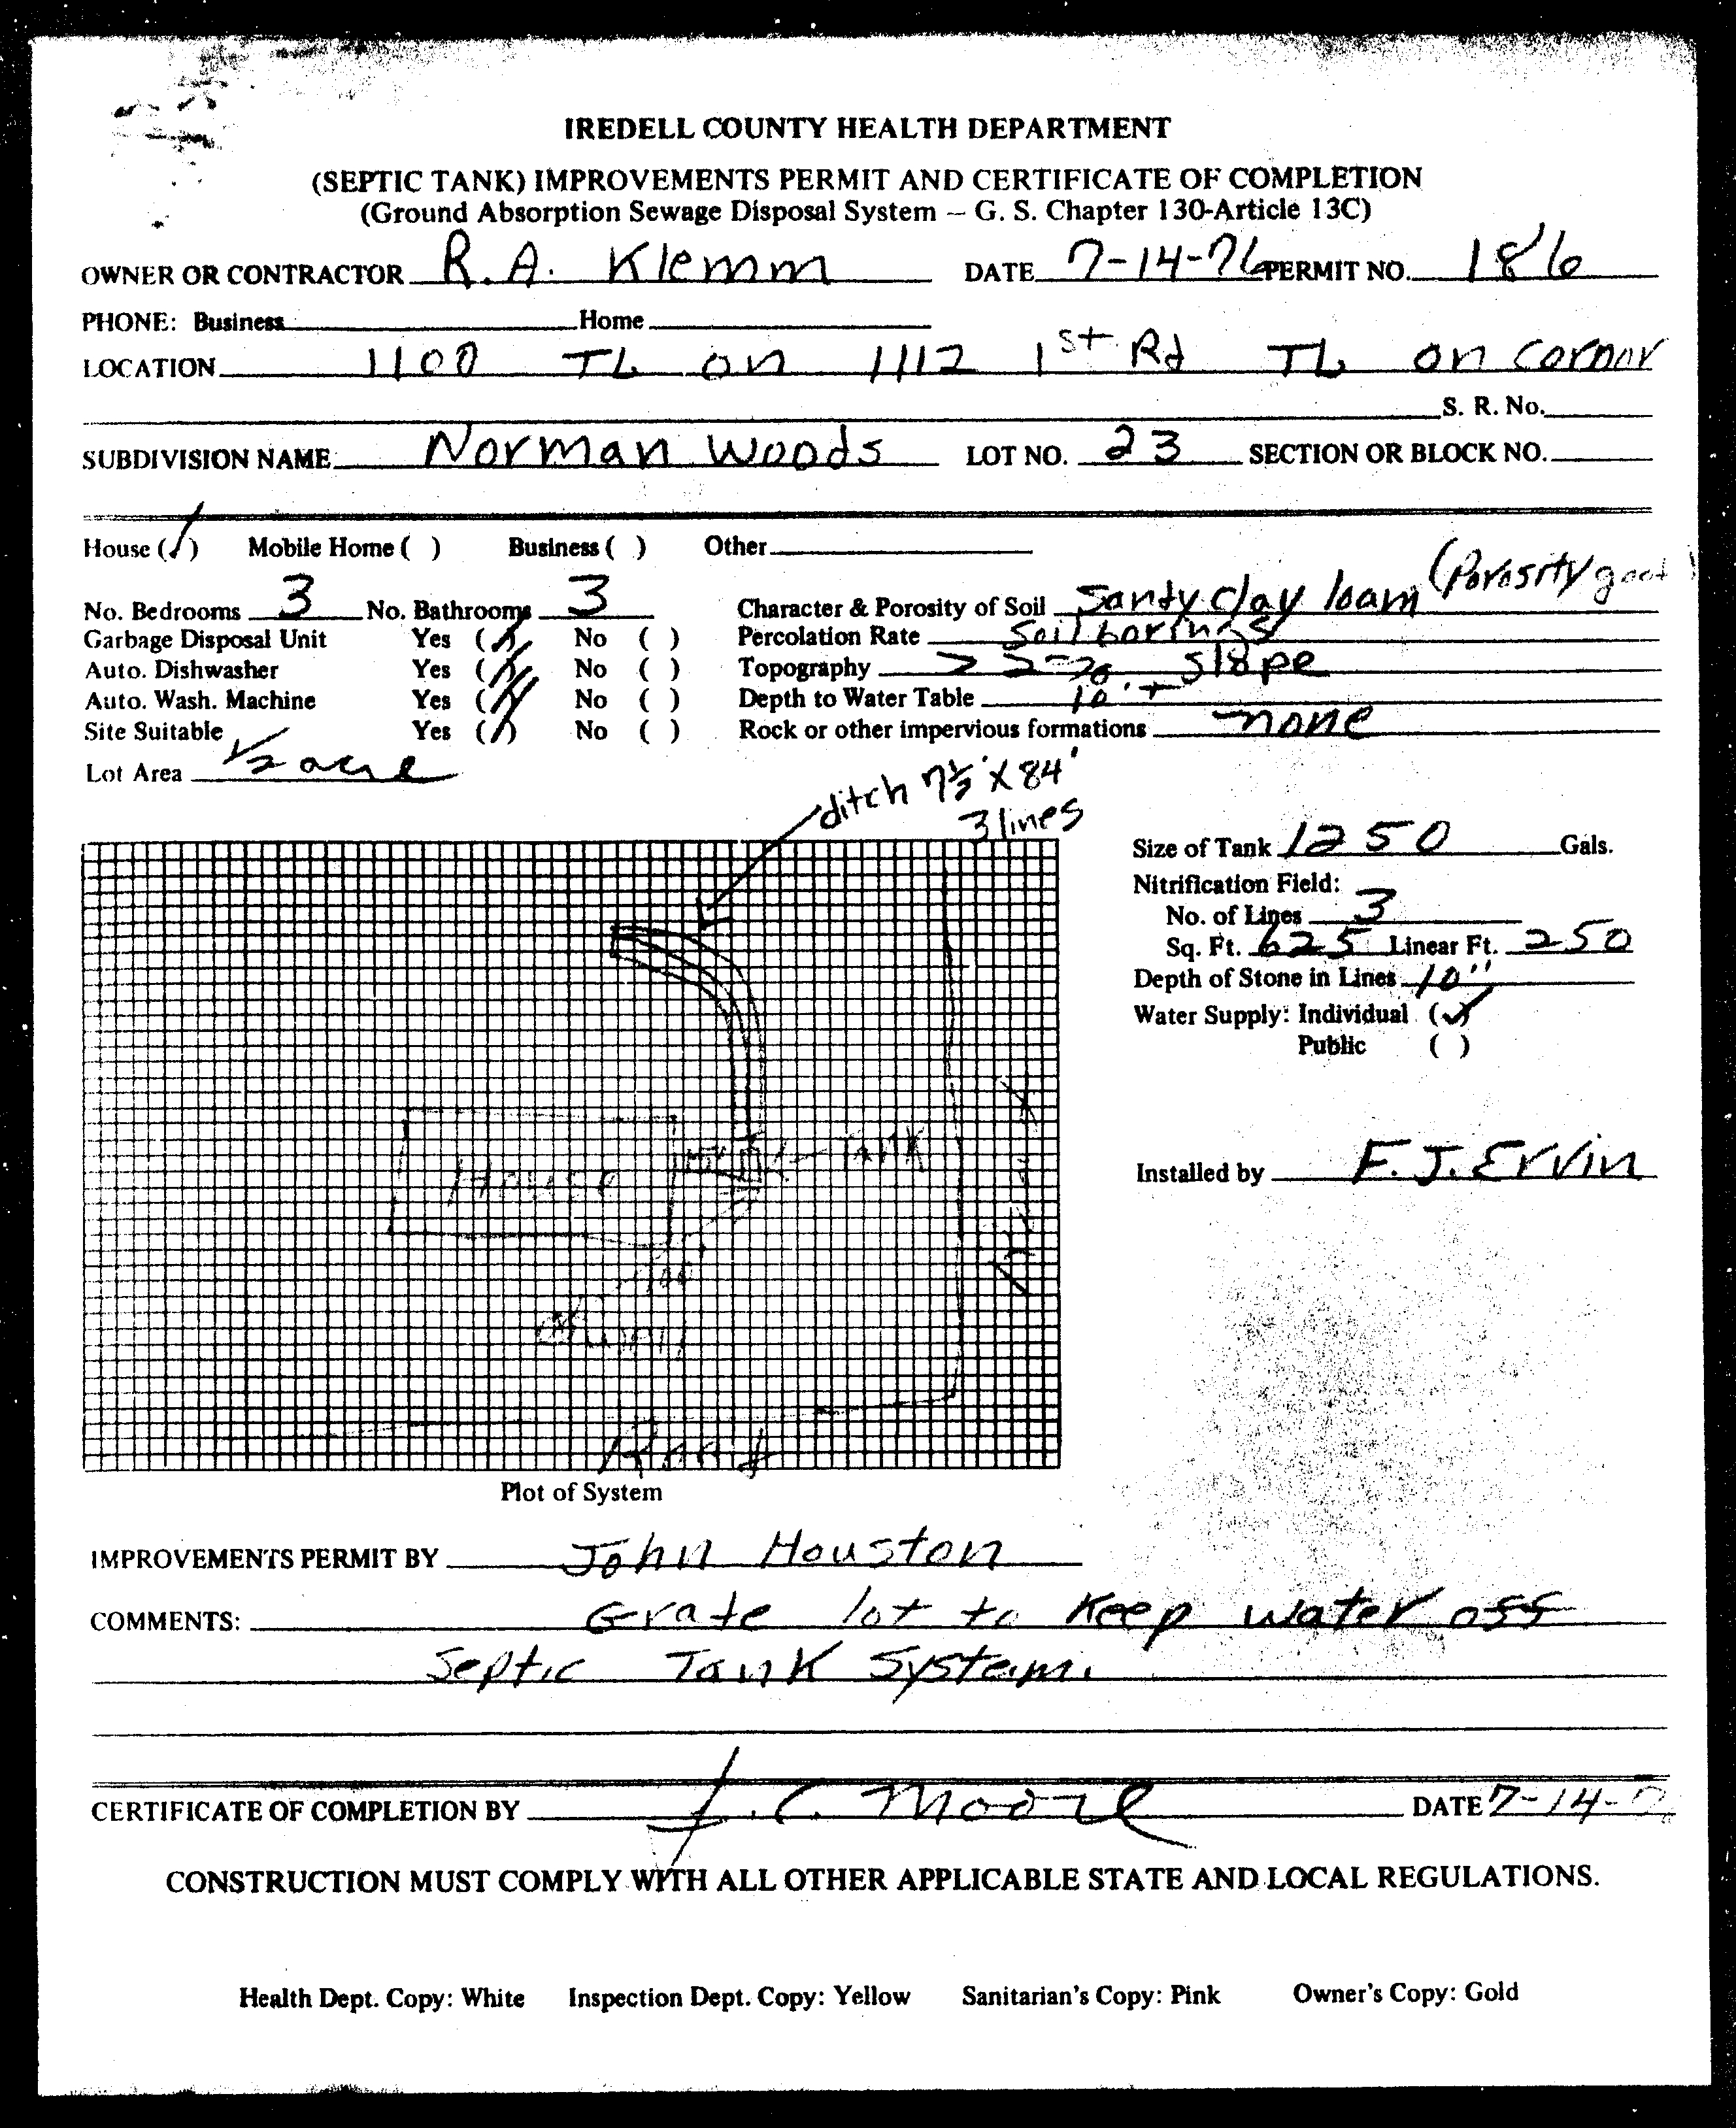 IREDELL COUNTY HEALTH DEPARTMENT
(SEPTIC TANK) IMPROVEMENTS PERMIT AND CERTIFICATE OF COMPLETION
(Ground Absorption Sewage Disposal System – G. S. Chapter 130-Article 13C)
OWNER OR CONTRACTOR R.A. Klemm DATE 7-14-76 PERMIT NO. 186
PHONE: Business Home
LOCATION 1100 TL on 1112 1st Rd TL on cornor
S. R. No.
SUBDIVISION NAME Norman Woods LOT NO. 23 SECTION OR BLOCK NO.
House (√) Mobile Home ( ) Business ( ) Other
No. Bedrooms 3 No. Bathrooms 3 Character & Porosity of Soil Sandy clay loam (Porosity good)
Garbage Disposal Unit Yes (√) No ( ) Percolation Rate Soil borings
Auto. Dishwasher Yes (√) No ( ) Topography slope
Auto. Wash. Machine Yes (√) No ( ) Depth to Water Table 10'+
Site Suitable Yes (√) No ( ) Rock or other impervious formations none
Lot Area 1/2 acre
ditch 7½' X 84'
3 lines
Size of Tank 1250 Gals.
Nitrification Field:
No. of Lines 3
Sq. Ft. 625 Linear Ft. 250
Depth of Stone in Lines 10"
Water Supply: Individual (√)
Public ( )
House
Tank
Installed by F. J. Ervin
Road
Plot of System
IMPROVEMENTS PERMIT BY John Houston
COMMENTS: Grate lot to Keep water off
Septic Tank System.
CERTIFICATE OF COMPLETION BY J. C. Moore DATE 7-14-
CONSTRUCTION MUST COMPLY WITH ALL OTHER APPLICABLE STATE AND LOCAL REGULATIONS.
Health Dept. Copy: White Inspection Dept. Copy: Yellow Sanitarian's Copy: Pink Owner's Copy: Gold